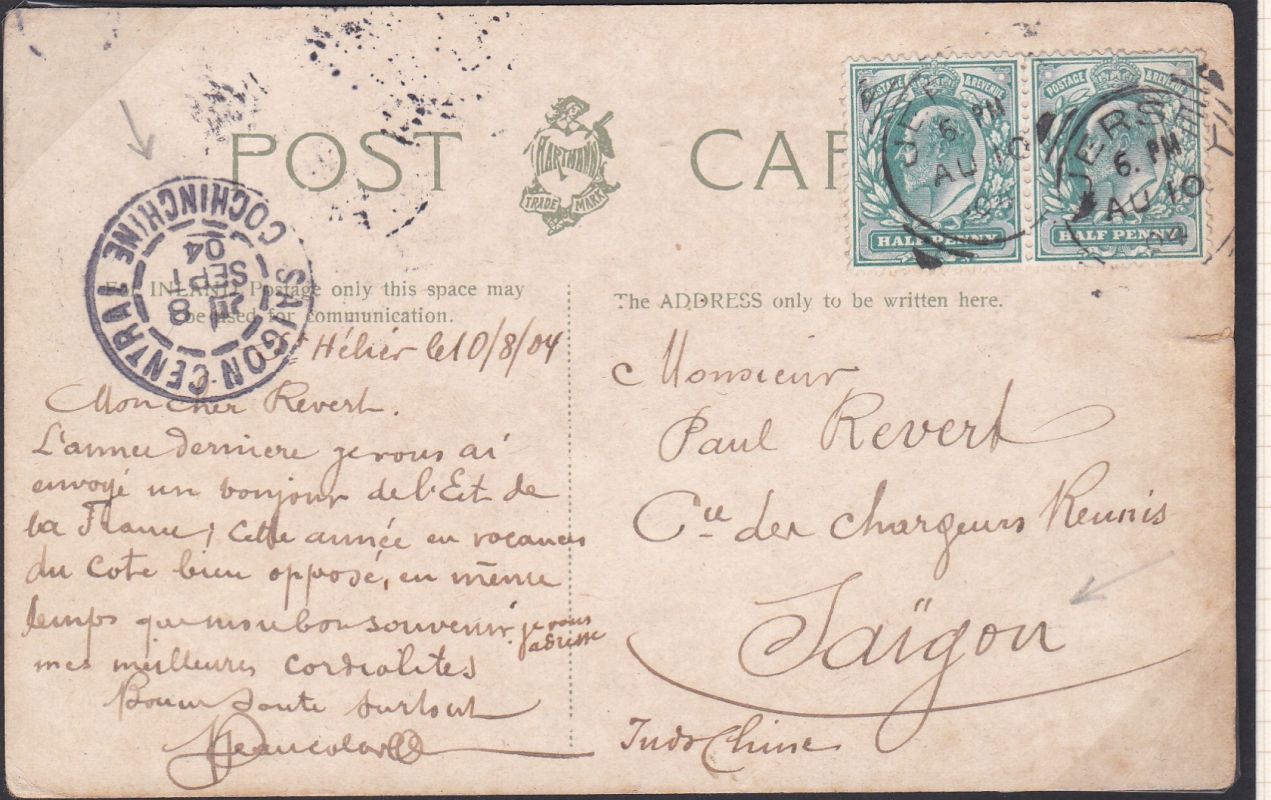 POST CAR
HARTMANN
TRADE MARK
POSTAGE & REVENUE
HALF PENNY
POSTAGE & REVENUE
HALF PENNY
JER
6. PM
AU 10
JERS Y
6. PM
AU 10
04
SAIGON-CENTRAL
COCHINCHINE
8
SEPT
04
INLAND Postage only this space may
be used for communication.
The ADDRESS only to be written here.
St Hélier le 10/8/04
Mon cher Revert.
L'année derniere je vous ai
envoyé un bonjour de l'Est de
la France; cette année en vacances
du Coté bien opposé, en même
temps que mon bon souvenir je vous
adresse
mes meilleures cordialités
Bonne Santé surtout
Monsieur
Paul Revert
Cie des Chargeurs Reunis
Saïgon
Indo Chine